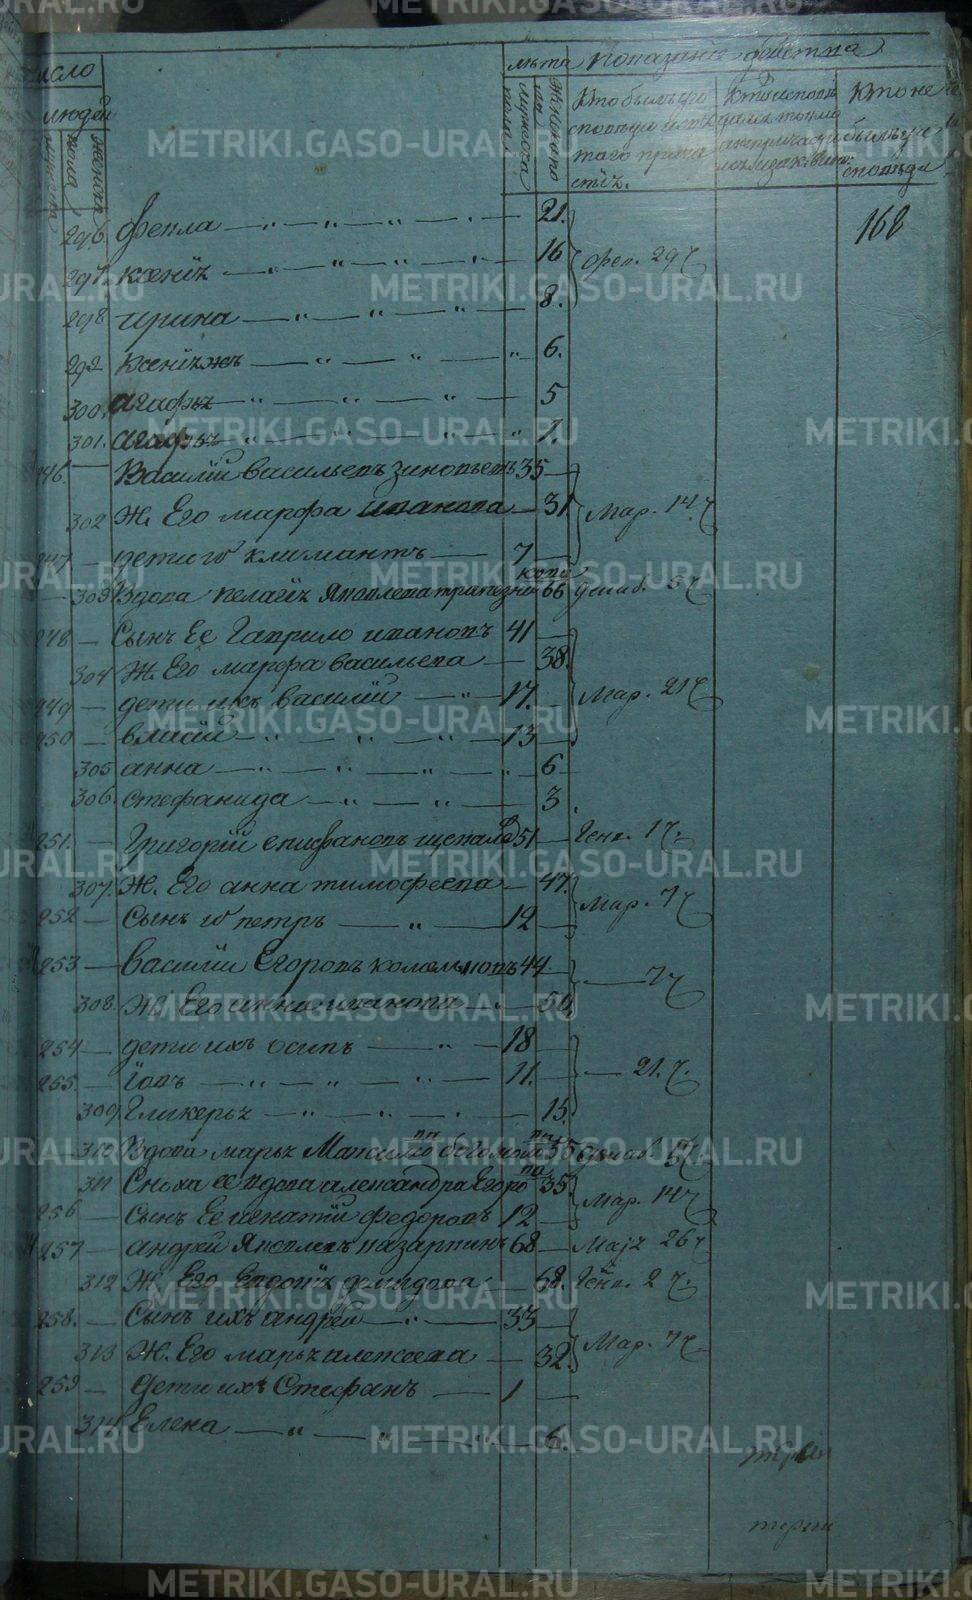 число лѣта показаніе дѣйства
людей
мужеска пола женска мужеска пола женскаго Кто былъ у исповѣди и святаго причастія Кто исповѣдался токмо а не причастился Кто не былъ у исповѣди
168
296 Фекла — „ — „ — 21.
297 Ксеніѧ — „ — „ — 16 Фев. 29 Ч
298 Ирина — „ — „ — „ — 8.
299 Ксеніѧжъ — „ — „ — „ 6.
300. Агафьѧ — „ — „ — „ — 5
301. Агафьѧ — „ — „ — „ 1.
246. Василіи Васильевъ Зиновьевъ 35 —
302 Ж. Его Марфа Иванова — 31 Мар. 14. Ч
247 — дети его Климантъ — 7 —
303 Вдова Пелагіѧ Яковлева Трапезникова 66 Декаб. 5 Ч
248 — Сынъ Ее Гаврило Ивановъ 41 —
304 Ж. Его Марфа Васильева — 38.
249 — дети ихъ Василіи — „ — 17. — Мар. 21 Ч
250 — — „ — „ — „ — 13 —
305 Анна — „ — „ — „ — „ 6
306. Стефанида — „ — „ — 3
251. Григоріи Епифановъ 51 — Генв. 1 Ч.
307. Ж. Его Анна Тимофеева — 47.
252 — Сынъ его Петръ — „ — 12 — Мар. 7 Ч
253 — Василіи Егоровъ 44 —
308. Ж. Его Анна Иванова — 50. — 7 Ч
254 — дети ихъ Осипъ — „ — 18 —
255. — Іовъ — „ — „ — „ — 11. — — 21. Ч.
309. Гликерьѧ — „ — „ — „ — 15.
310 Вдова Марьѧ 55 Декаб. Ч
311 Сноха ее вдова Александра Егорова 35
256 — Сынъ Ее Игнатіи Федоровъ 12 — Мар. 14 Ч
257 — Андреи Яковлевъ Назаркинъ 68 — Маіѧ 26 Ч
312 Ж. Его Евдокіѧ Демидова — 68. Генв. 2 Ч.
258. — Сынъ ихъ Андреи — „ — 33 —
313 Ж. Его Марьѧ Алексеева — 32. Мар. 7 Ч
259 — дети ихъ Стефанъ — 1 —
314 Елена — „ — „ — „ — 6.
METRIKI.GASO-URAL.RU